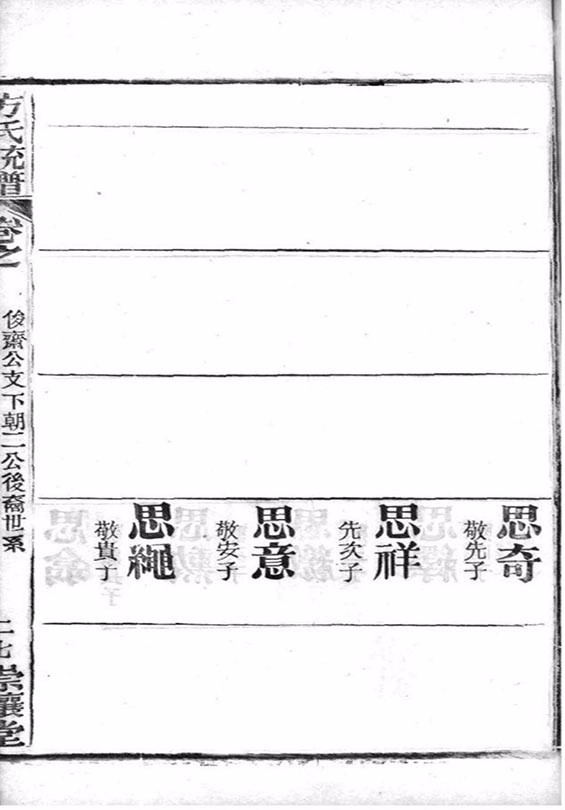 思奇
敬先子
思祥
先次子
思意
敬安子
思繩
敬貴子
方氏統譜
卷之
俊齋公文下朝二公後裔世系
崇讓堂